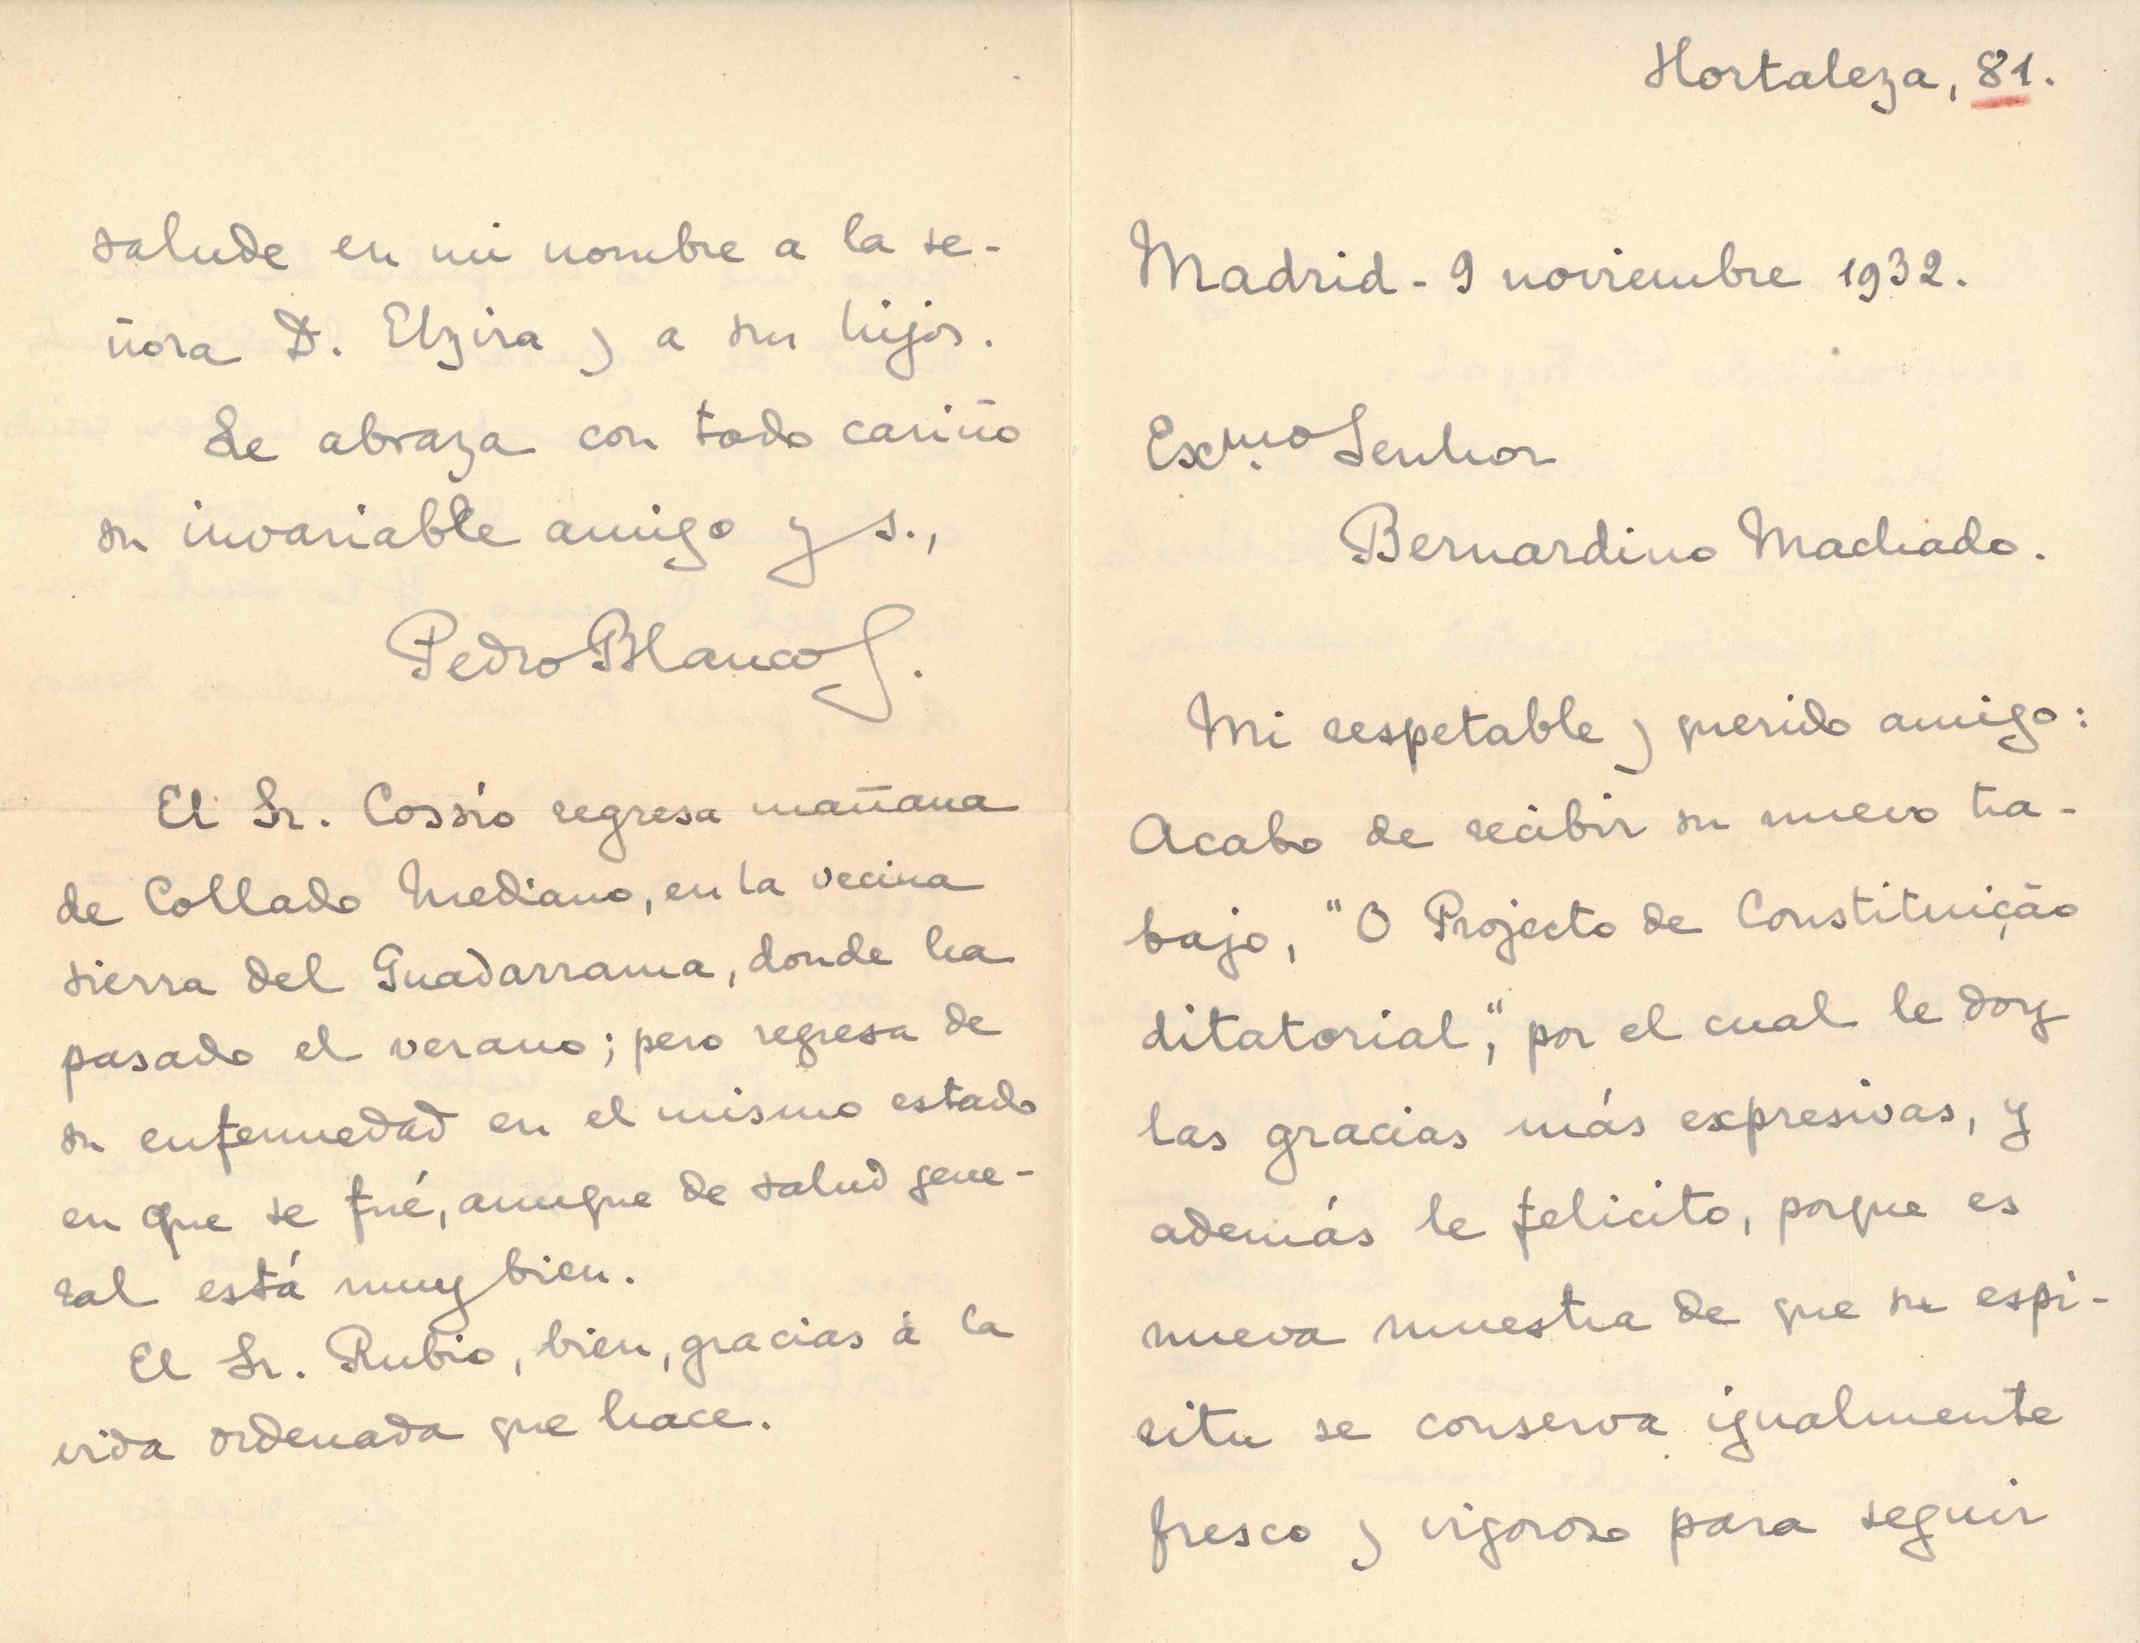 Hortaleza, 81.
Madrid - 9 noviembre 1932.
Exmo. Senhor
Bernardino Machado.
Mi respetable y querido amigo:
Acabo de recibir su nuevo tra-
bajo, "O Projecto de Constituição
ditatorial", por el cual le doy
las gracias más expresivas, y
además le felicito, porque es
nueva muestra de que su espí-
ritu se conserva igualmente
fresco y vigoroso para seguir
salude en mi nombre a la se-
ñora D. Elzira y a sus hijos.
Le abraza con todo cariño
su invariable amigo y s.,
Pedro Blanco S.
El Sr. Cossío regresa mañana
de Collado Mediano, en la vecina
sierra del Guadarrama, donde ha
pasado el verano; pero regresa de
su enfermedad en el mismo estado
en que se fué, aunque de salud gene-
ral está muy bien.
El Sr. Rubio, bien, gracias á la
vida ordenada que hace.